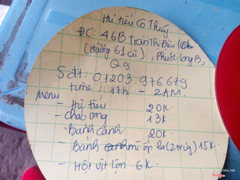 Hủ tiếu Cô Thủy
ĐC: 46B Trần Thị Điệu
(đường 61 cũ), Phước Long B,
Q9
Sđt: 01203 976679
time: 17h - 2AM.
Menu
- Hủ tiếu 20K
- cháo lòng 13K
- Bánh canh 20K
- Bánh mì ốp la (2 trứng) 15K
- Hột vịt lộn 6K